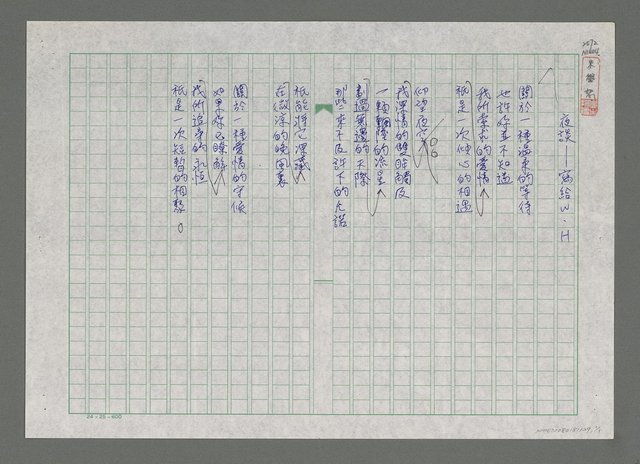 夜談——寫給W.H
關於一種溫柔的等待
也許妳並不知道
我所索求的愛情
祇是一次傾心的相遇
仰望夜空
我深情的雙眸觸及
一顆
的流星
劃過無邊的天際
那些來不及許下的允諾
祇能將它深藏
在微涼的晚風裏
關於一種愛情的守候
如果妳已瞭解
我所追求的永恆
祇是一次短暫的相聚。
24×25=600